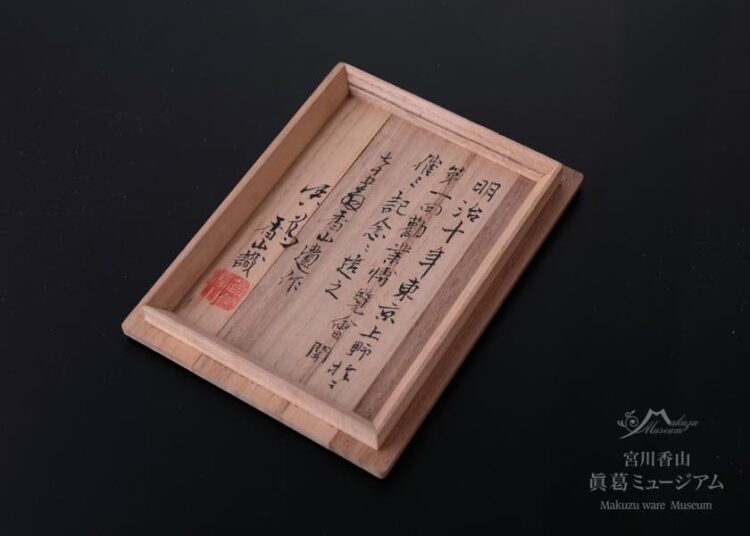 明治十年東京上野於テ
第一回勸業博覽會開
催之記念ニ造之
香山遺作
真葛香山識
Makuzu
Museum
宮川香山
眞葛ミュージアム
Makuzu ware Museum